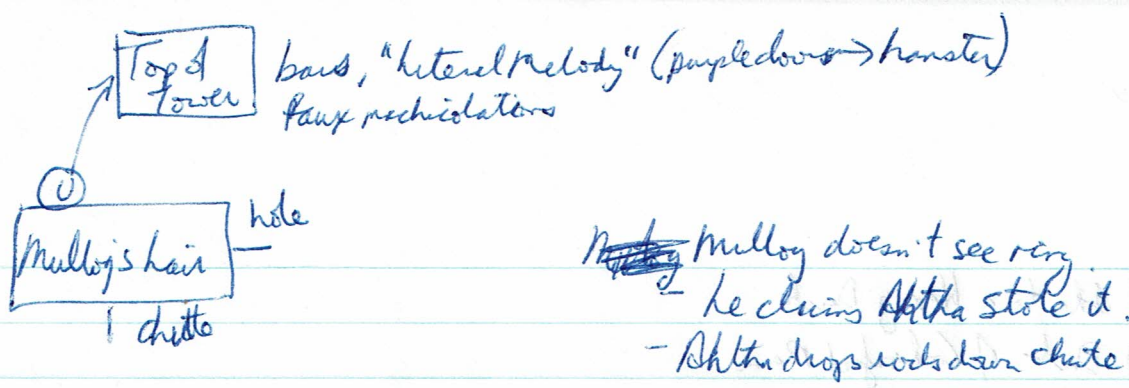 Top of
Tower
bars, "Literal Melody" (purple door → hamster)
Faux machicolations
U
Mullog's lair
hole
chute
Mullog doesn't see ring.
- he claims Ahtha stole it.
- Ahtha drops rocks down chute